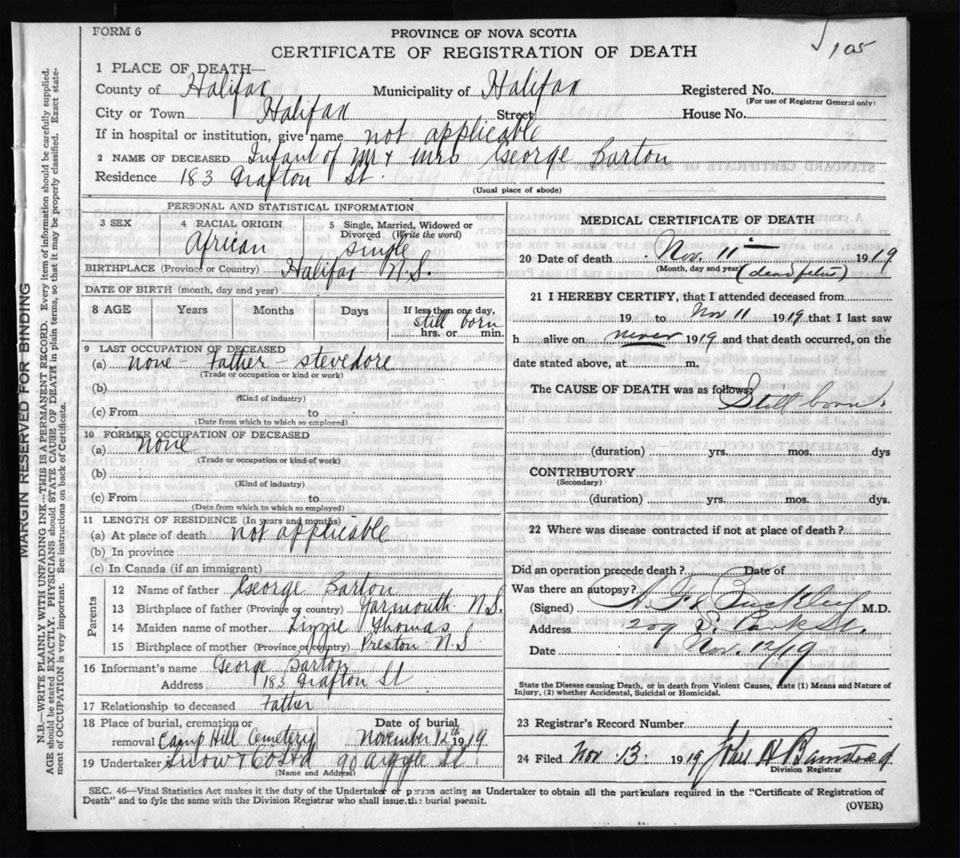 FORM 6
PROVINCE OF NOVA SCOTIA
CERTIFICATE OF REGISTRATION OF DEATH
105
1 PLACE OF DEATH—
County of Halifax Municipality of Halifax Registered No.
(For use of Registrar General only)
City or Town Halifax Street House No.
If in hospital or institution, give name not applicable
2 NAME OF DECEASED Infant of Mr & Mrs George Barton
Residence 183 Grafton St.
(Usual place of abode)
PERSONAL AND STATISTICAL INFORMATION
3 SEX 4 RACIAL ORIGIN African 5 Single, Married, Widowed or Divorced (Write the word) single
BIRTHPLACE (Province or Country) Halifax N.S.
DATE OF BIRTH (month, day and year)
8 AGE Years Months Days If less then one day, still born hrs. or min.
9 LAST OCCUPATION OF DECEASED
(a) none - Father - stevedore
(Trade or occupation or kind or work)
(b)
(Kind of industry)
(c) From to
(Date from which to which so employed)
10 FORMER OCCUPATION OF DECEASED
(a) none
(Trade or occupation or kind of work)
(b)
(Kind of industry)
(c) From to
(Date from which to which so employed)
11 LENGTH OF RESIDENCE (In years and months)
(a) At place of death not applicable
(b) In province
(c) In Canada (if an immigrant)
Parents
12 Name of father George Barton
13 Birthplace of father (Province or country) Yarmouth N.S.
14 Maiden name of mother Lizzie Thomas
15 Birthplace of mother (Province or country) Preston N.S
16 Informant's name George Barton
Address 183 Grafton St
17 Relationship to deceased Father
18 Place of burial, cremation or removal Camp Hill Cemetery Date of burial November 12th 1919
19 Undertaker Snow & Co Ltd 90 Argyle St
(Name and Address)
MEDICAL CERTIFICATE OF DEATH
20 Date of death Nov. 11 1919
(Month, day and year) (dead fetus)
21 I HEREBY CERTIFY, that I attended deceased from
19 to Nov 11 1919 that I last saw
h alive on never 1919 and that death occurred, on the
date stated above, at m.
The CAUSE OF DEATH was as follows:
Still born.
(duration) yrs. mos. dys
CONTRIBUTORY
(Secondary)
(duration) yrs. mos. dys.
22 Where was disease contracted if not at place of death?
Did an operation precede death? Date of
Was there an autopsy?
(Signed) Buckley M.D.
Address 209 S. Park St.
Date Nov. 12/19
State the Disease causing Death, or in death from Violent Causes, state (1) Means and Nature of
Injury, (2) whether Accidental, Suicidal or Homicidal.
23 Registrar's Record Number
24 Filed Nov 13. 1919 John H Barnstead
Division Registrar
SEC. 46—Vital Statistics Act makes it the duty of the Undertaker or person acting as Undertaker to obtain all the particulars required in the "Certificate of Registration of
Death" and to fyle the same with the Division Registrar who shall issue the burial permit.
(OVER)
MARGIN RESERVED FOR BINDING
N.B.—WRITE PLAINLY WITH UNFADING INK—THIS IS A PERMANENT RECORD. Every item of information should be carefully supplied.
AGE should be stated EXACTLY. PHYSICIANS should STATE CAUSE OF DEATH in plain terms, so that it may be properly classified. Exact state-
ment of OCCUPATION is very important. See instructions on back of Certificate.